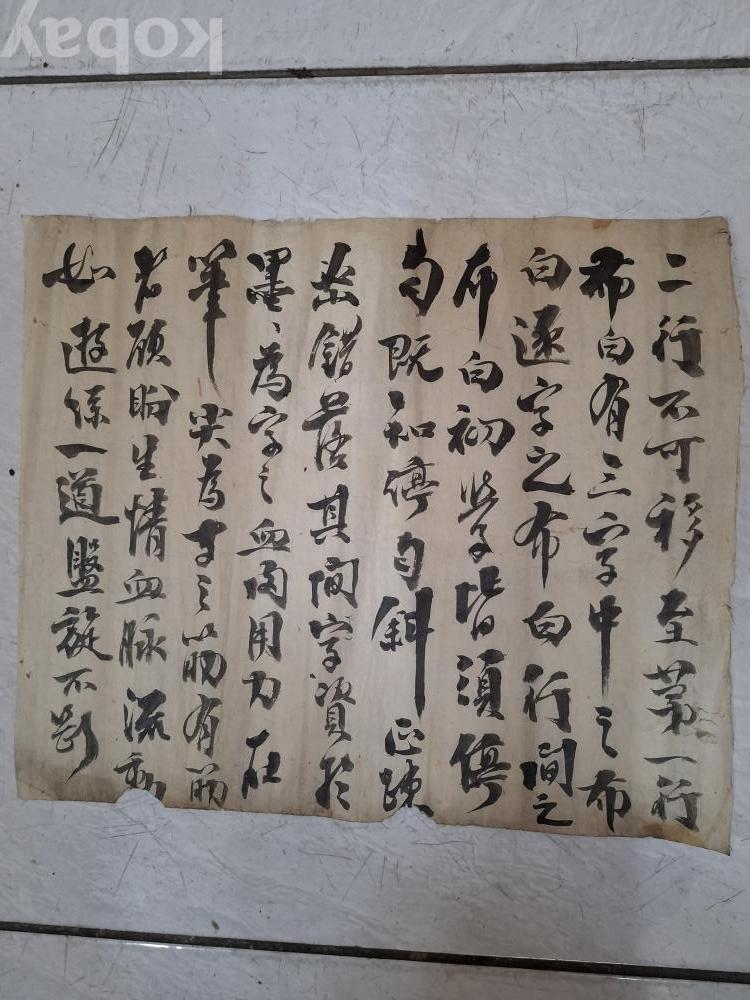 kobay
二行不可移至第一行
布白有三字中之布
白逐字之布白行間之
布白初學皆須停
勻既知停勻斜正疎
密錯落其間字資於
墨〻為字之血肉用力在
筆尖為字之筋有筋
者顧盼生情血脉流動
如遊絲一道盤旋不斷